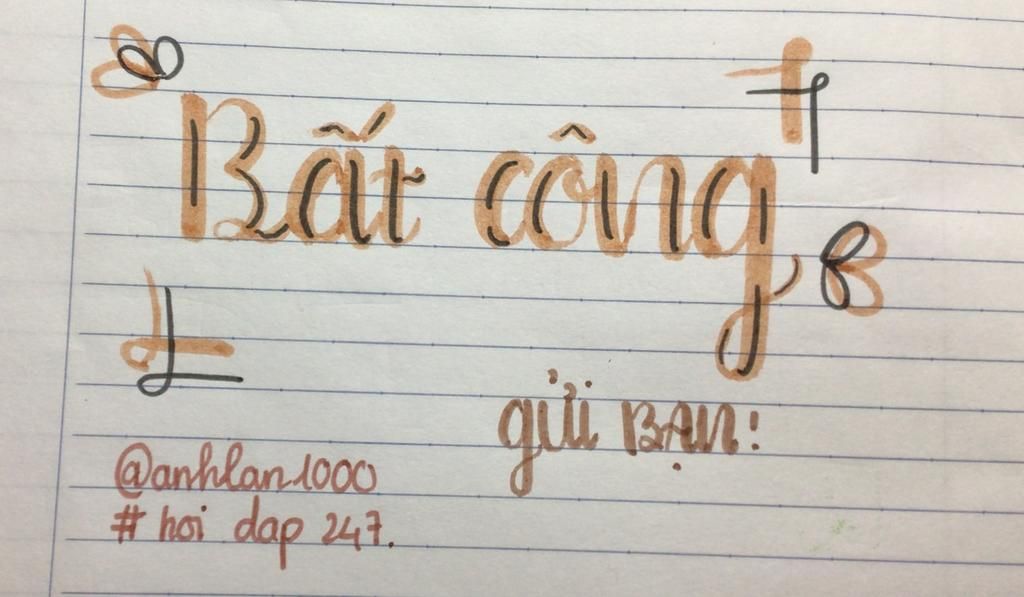 Bất công
gửi BẠN:
@anhlan1000
# hoi dap 247.